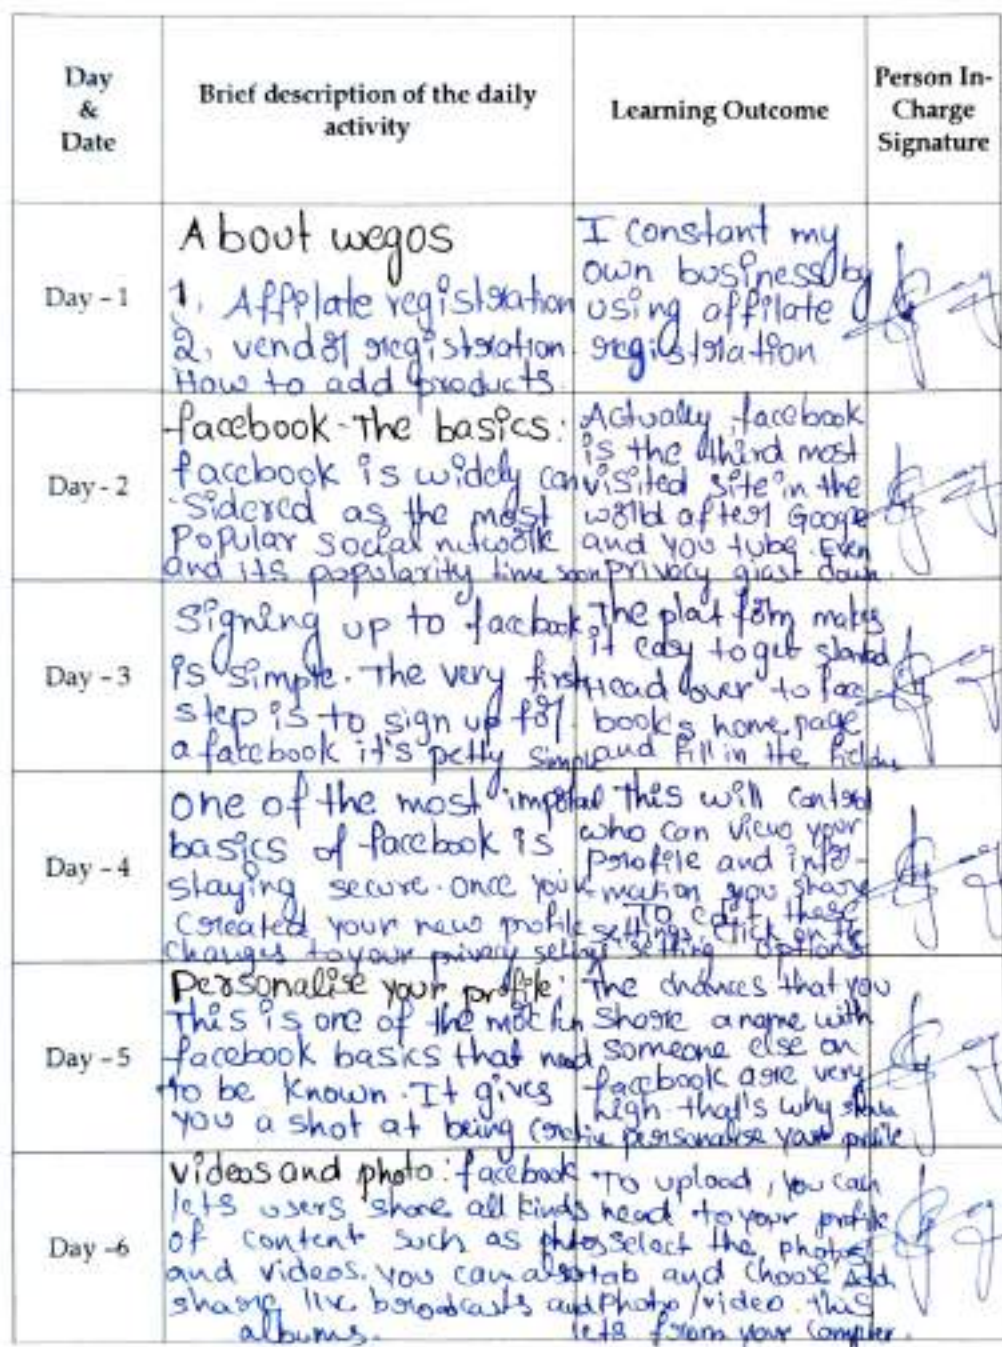 Day
&
Date
Brief description of the daily
activity
Learning Outcome
Person In-
Charge
Signature
Day - 1
About wegos
1. Affilate registration
2. vendor registration
How to add products.
I constant my
own business by
using affilate
registration
Day - 2
facebook - The basics:
facebook is widely con
-sidered as the most
Popular social network
and its popularity time soon
Actually, facebook
is the third most
visited site in the
world after Google
and you tube. Even
privacy giast down.
Day - 3
Signing up to facebook
is simple. The very first
step is to sign up for
a facebook it's petty simple
The plat form makes
it easy to get started
Head over to face
book's home page
and fill in the fields
Day - 4
one of the most import
basics of facebook is
staying secure. once you
created your new profile
changes to your privacy
this will control
who can view your
profile and infor-
mation you share
To edit these
settings, click on the
setting options
Day - 5
Personalise your profile:
This is one of the
facebook basics that need
to be known. It gives
you a shot at being
The chances that you
share a name with
someone else on
facebook are very
high. that's why
personalise your profile
Day -6
videos and photo: facebook
lets users share all kinds
of content such as photos
and videos. you can also
share live broadcasts and
albums.
To upload, you can
head to your profile
select the photos
tab and choose Add
Photo/video. this
lets from your computer.